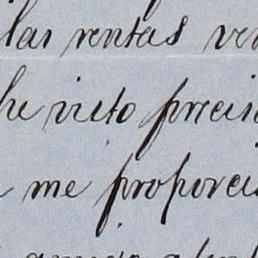 las rentas ven
he visto precis
me proporci